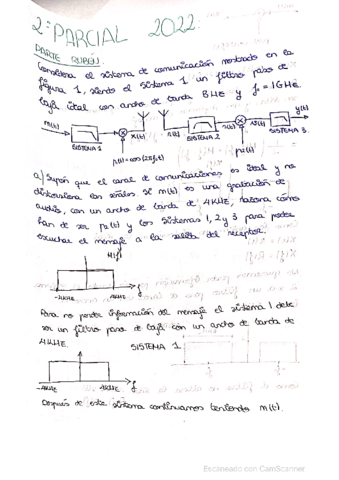 2º PARCIAL 2022.
PARTE RUBÉN.
Considera el sistema de comunicación mostrado en la
figura 1, siendo el sistema 1 un filtro paso de
baja ideal con ancho de banda B Hz y f₀ = 1GHz.
m(t) x(t) s(t) v(t) y(t)
SISTEMA 1 SISTEMA 2 SISTEMA 3.
p₁(t) = cos(2πf₀t) p₂(t)
a) Supón que el canal de comunicaciones es ideal y no
distorsiona las señales. Si m(t) es una grabación de
audio, con un ancho de banda de 4KHz, razona cómo
han de ser p₂(t) y los sistemas 1, 2 y 3 para poder
escuchar el mensaje a la salida del receptor.
M(f)
-4KHz 4KHz f
Para no perder información del mensaje el sistema 1 debe
ser un filtro paso de baja con un ancho de banda de
4KHz. SISTEMA 1
-4KHz 4KHz f
Después de este sistema continuamos teniendo m(t).
Escaneado con CamScanner